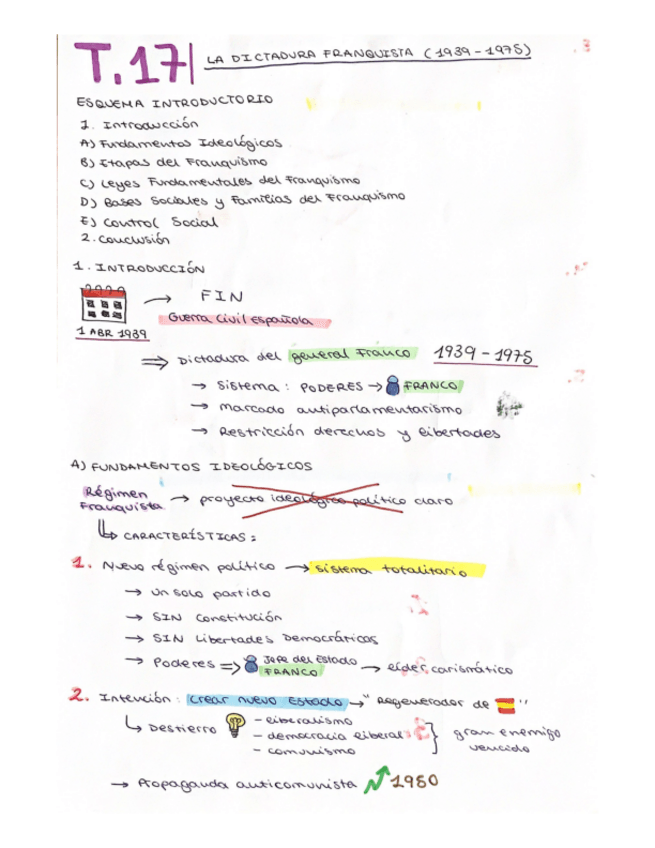 T.17 LA DICTADURA FRANQUISTA (1939-1975)
ESQUEMA INTRODUCTORIO
1. Introducción
A) Fundamentos Ideológicos
B) Etapas del Franquismo
C) Leyes Fundamentales del Franquismo
D) Bases Sociales y Familias del Franquismo
E) Control Social
2. Conclusión
1. INTRODUCCIÓN
→ FIN
Guerra Civil Española
1 ABR 1939
⇒ Dictadura del general Franco 1939-1975
→ Sistema: PODERES → FRANCO
→ Marcado antiparlamentarismo
→ Restricción derechos y libertades
A) FUNDAMENTOS IDEOLÓGICOS
Régimen Franquista → proyecto ideológico político claro
↳ CARACTERÍSTICAS:
1. Nuevo régimen político → sistema totalitario
→ Un solo partido
→ SIN Constitución
→ SIN Libertades Democráticas
→ Poderes ⇒ Jefe del Estado FRANCO → líder carismático
2. Intención: crear nuevo Estado → "Regenerador de "
↳ Destierro - liberalismo
- democracia liberal } gran enemigo vencido
- comunismo
→ Propaganda anticomunista 1950